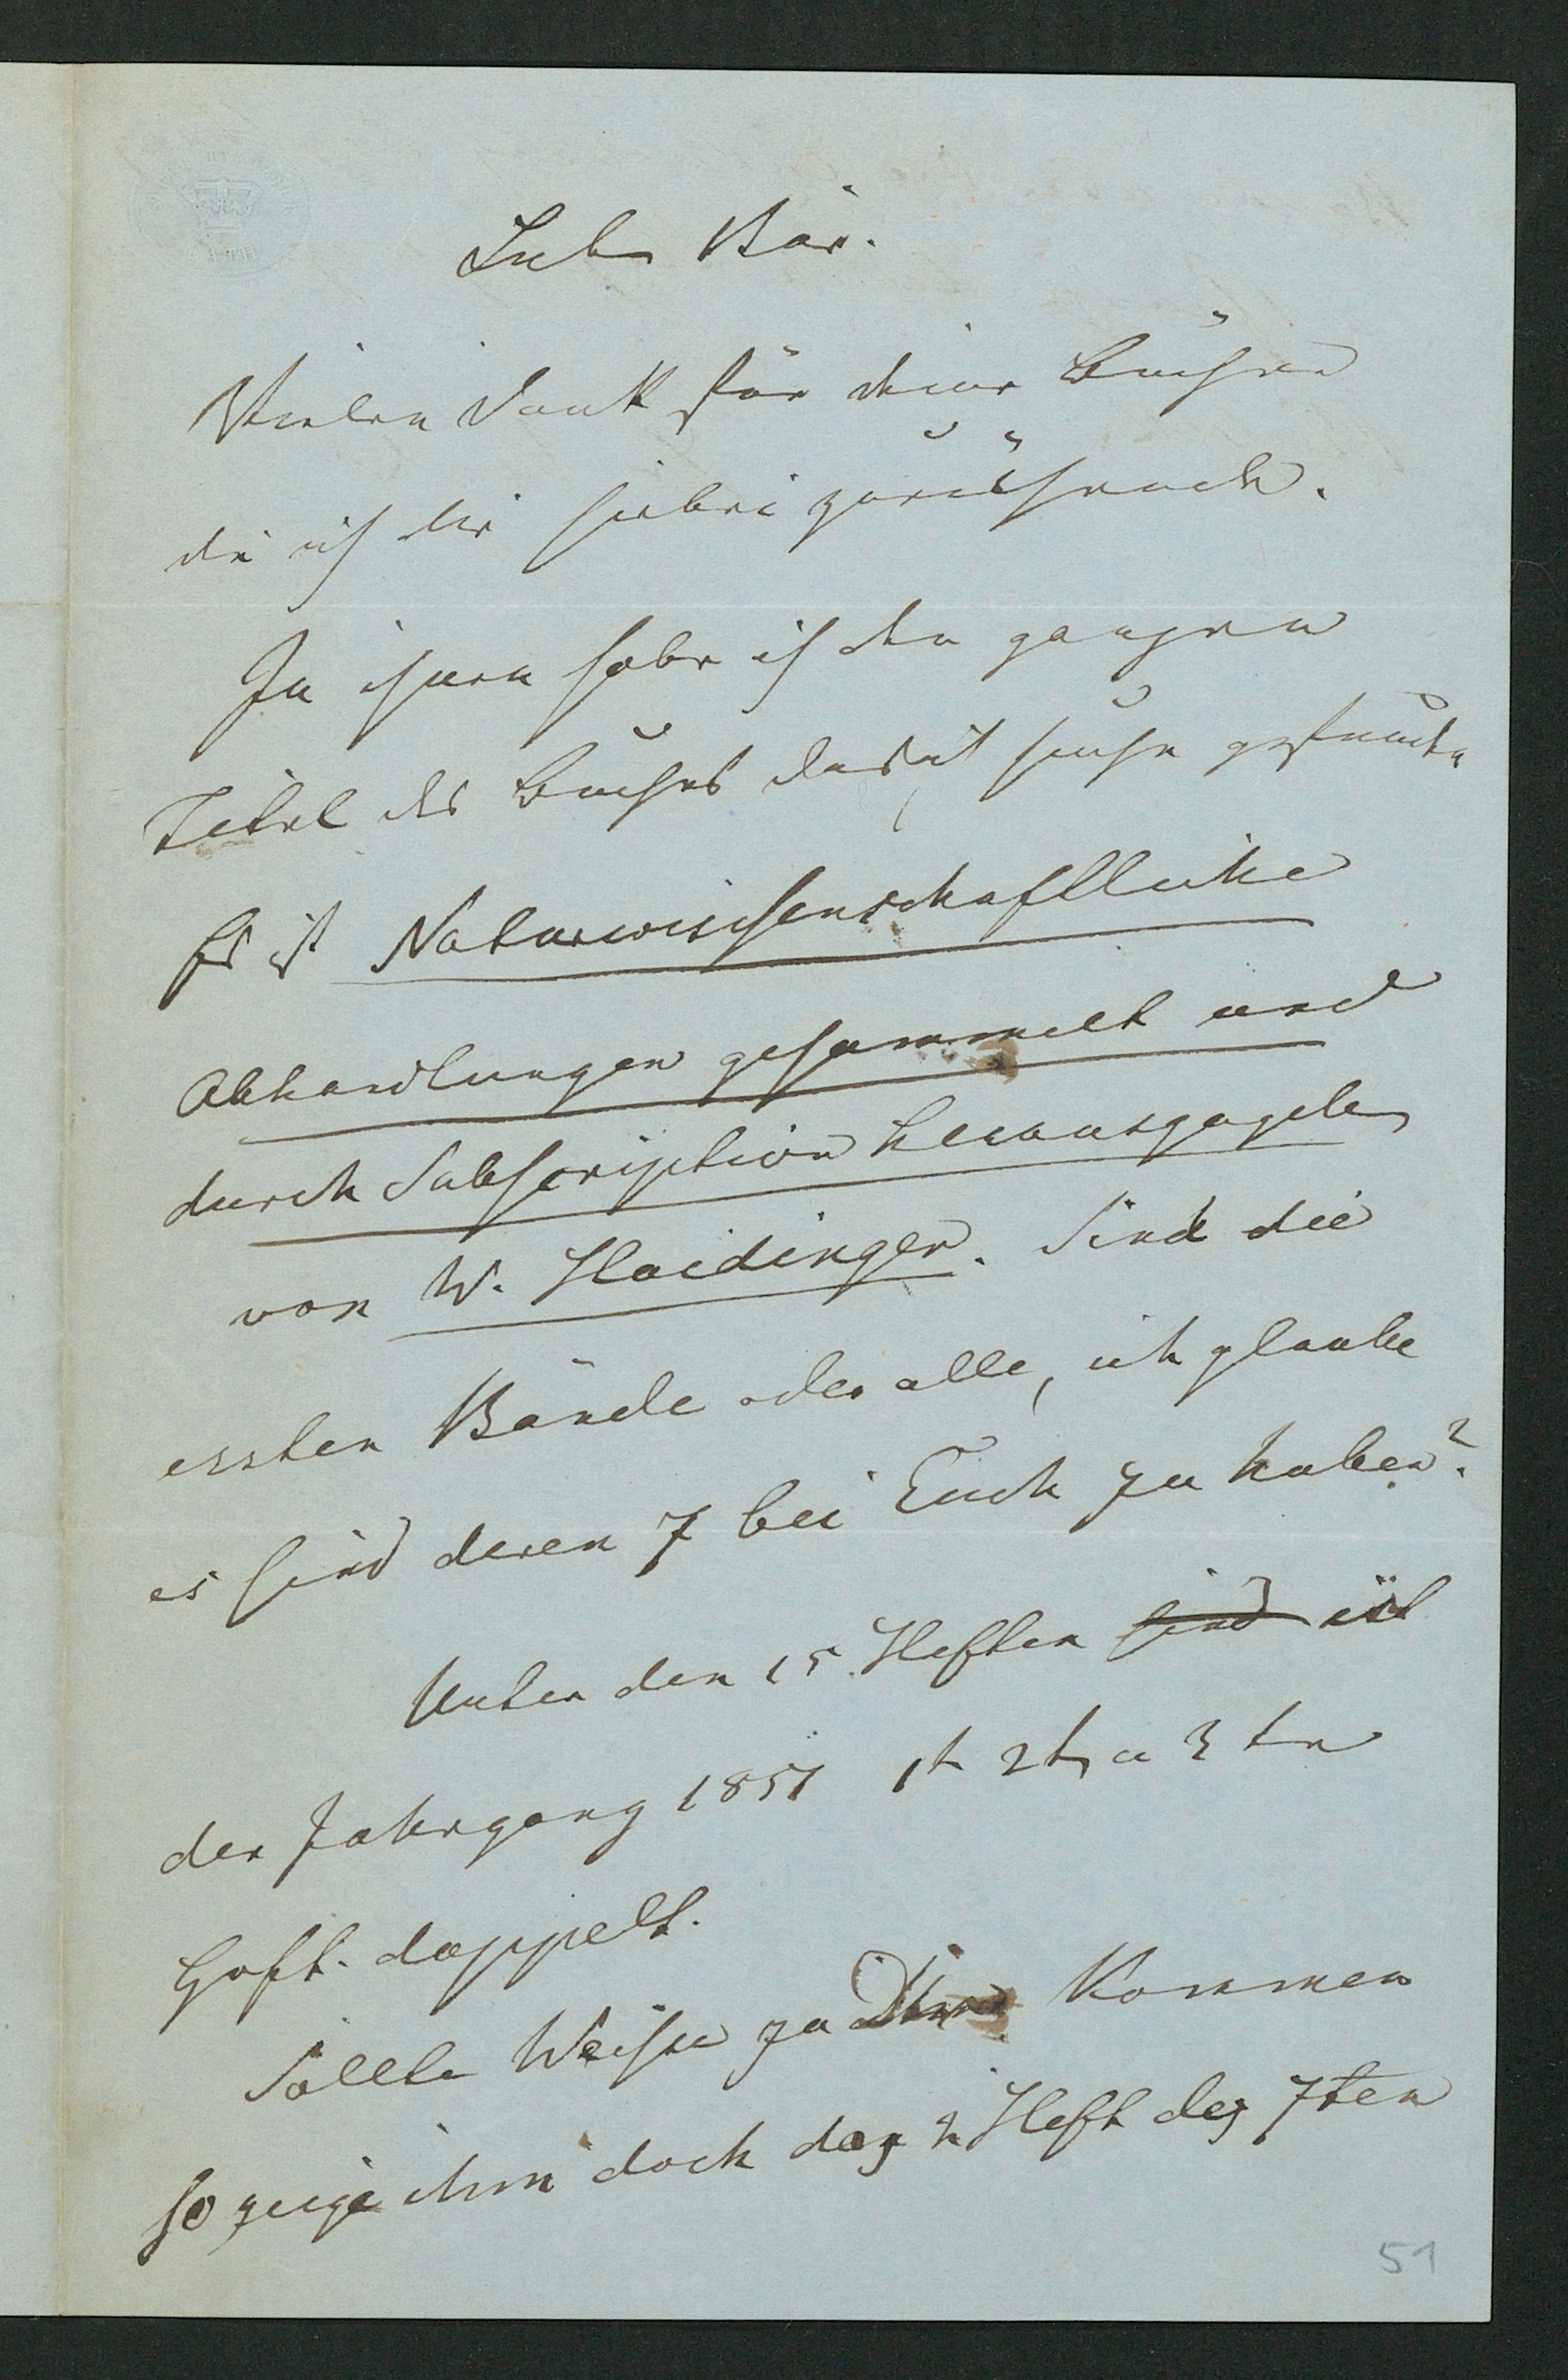 Lieber Bär.
Vielen Dank für deine Bücher
die ich dir hiebei zurücksende.
In ihnen habe ich den ganzen
Titel des Buches das ich suche gefunden
Es ist Naturwissenschaftliche
Abhandlungen gesammelt und
durch Subscription herausgegeben
von W. Haidinger. Sind die
ersten Bände oder alle, ich glaube
es sind deren 7 bei Euch zu haben?
Unter den 15 Heften sind ist
der Jahrgang 1851 1t 2t u 3 te
Heft. doppelt.
Sollte zu Kommen
so zeige ihm doch das 2 Heft des 7ten
51